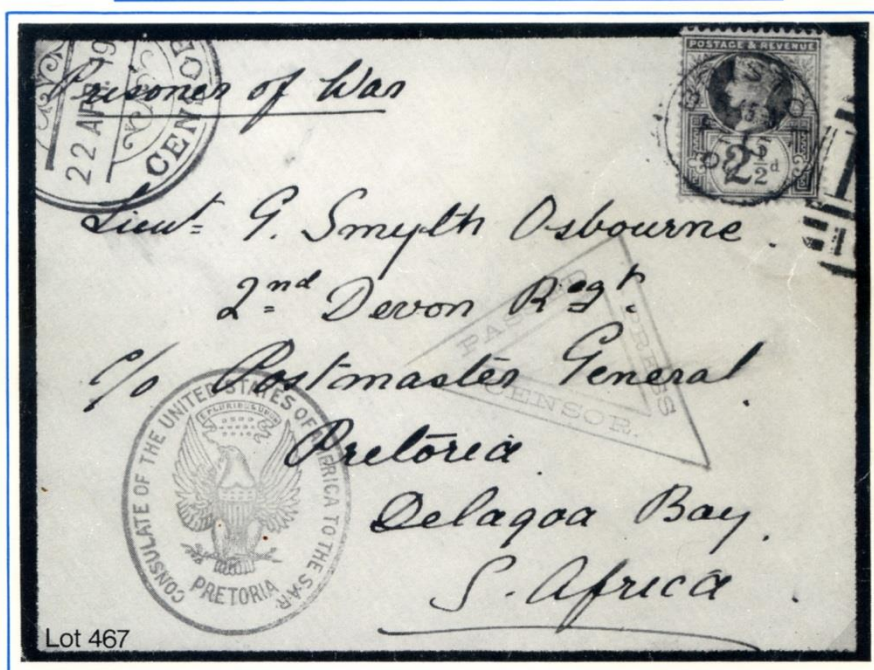 POSTAGE & REVENUE
2½d
22 AP
CENSOR
Prisoner of War
Lieut G. Smyth Osbourne
2nd Devon Regt.
c/o Postmaster General
Pretoria
Delagoa Bay
S. Africa
PASSED PRESS CENSOR.
CONSULATE OF THE UNITED STATES OF AMERICA TO THE S.A.R.
E PLURIBUS UNUM
PRETORIA
Lot 467